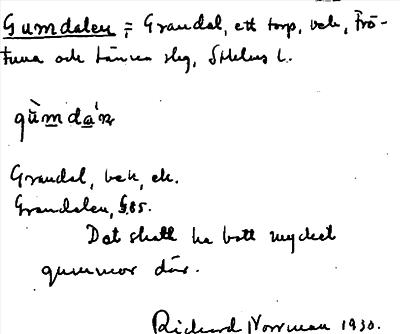 Gumdalen = Grandal, ett torp, bek, Frö-
tuna och Länna slg, Sthlms l.
gùmdá'n
Grandal, bek, ek.
Grandalen, G.85.
Det skall ha bott mycket
gummor där.
Richard Norrman 1930.